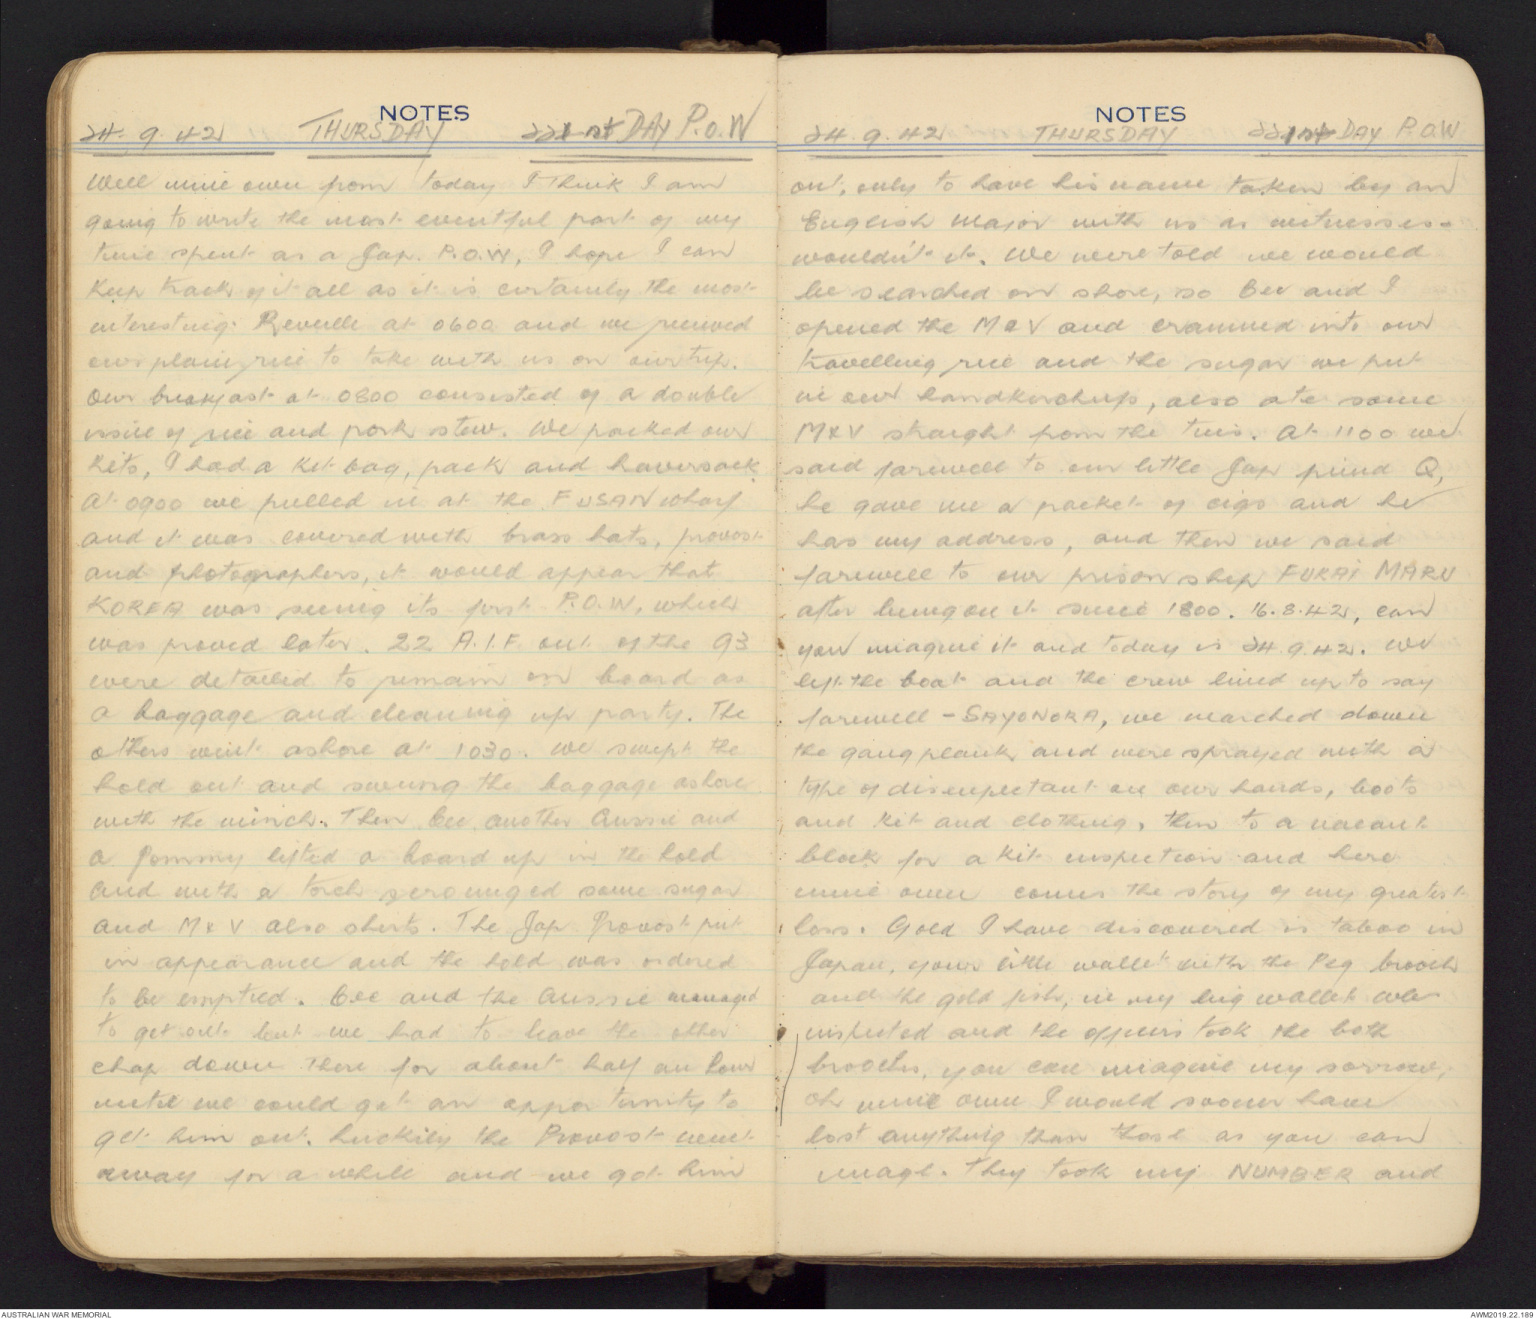 NOTES
24. 9. 42 THURSDAY 221st DAY P.O.W
Well mine own from today I think I am
going to write the most eventful part of my
time spent as a Jap. P.O.W, I hope I can
keep track of it all as it is certainly the most
interesting. Reveille at 0600 and we received
our plain rice to take with us on our trip.
Our breakfast at 0800 consisted of a double
issue of rice and pork stew. We packed our
kits, I had a kit bag, pack and haversack.
At 0900 we pulled in at the FUSAN wharf
and it was covered with brass hats, provost
and photographers, it would appear that
KOREA was seeing its first P.O.W, which
was proved later. 22 A.I.F. out of the 93
were detailed to remain on board as
a baggage and cleaning up party. The
others went ashore at 1030. We swept the
hold out and swung the baggage ashore
with the winch. Then Bee, another Aussie and
a Pommy lifted a board up in the hold
and with a torch scrounged some sugar
and M & V also shirts. The Jap Provost put
in appearance and the hold was ordered
to be emptied. Bee and the Aussie managed
to get out but we had to leave the other
chap down there for about half an hour
until we could get an opportunity to
get him out. Luckily the Provost went
away for a while and we got him
NOTES
24. 9. 42 THURSDAY 221st DAY P.O.W
out, only to have his name taken by an
English Major with us as witnesses -
wouldn't it. We were told we would
be searched on shore, so Bee and I
opened the M & V and crammed into our
travelling rice and the sugar we put
in our handkerchiefs, also ate some
M & V straight from the tins. At 1100 we
said farewell to our little Jap friend Q,
he gave me a packet of cigs and he
has my address, and then we said
farewell to our prison ship FUKAI MARU
after being on it since 1800. 16.8.42, can
you imagine it and today is 24.9.42. We
left the boat and the crew lined up to say
farewell - SAYONORA, we marched down
the gangplank and were sprayed with a
type of disenfectant on our hands, boots
and kit and clothing, then to a vacant
block for a kit inspection and here
mine own comes the story of my greatest
loss. Gold I have discovered is taboo in
Japan, your little wallet with the Peg brooch
and the gold fish, in my big wallet were
inspected and the officers took the both
brooches, you can imagine my sorrow,
Oh mine own I would sooner have
lost anything than those as you can
image. They took my NUMBER and
AUSTRALIAN WAR MEMORIAL
AWM2019.22.189